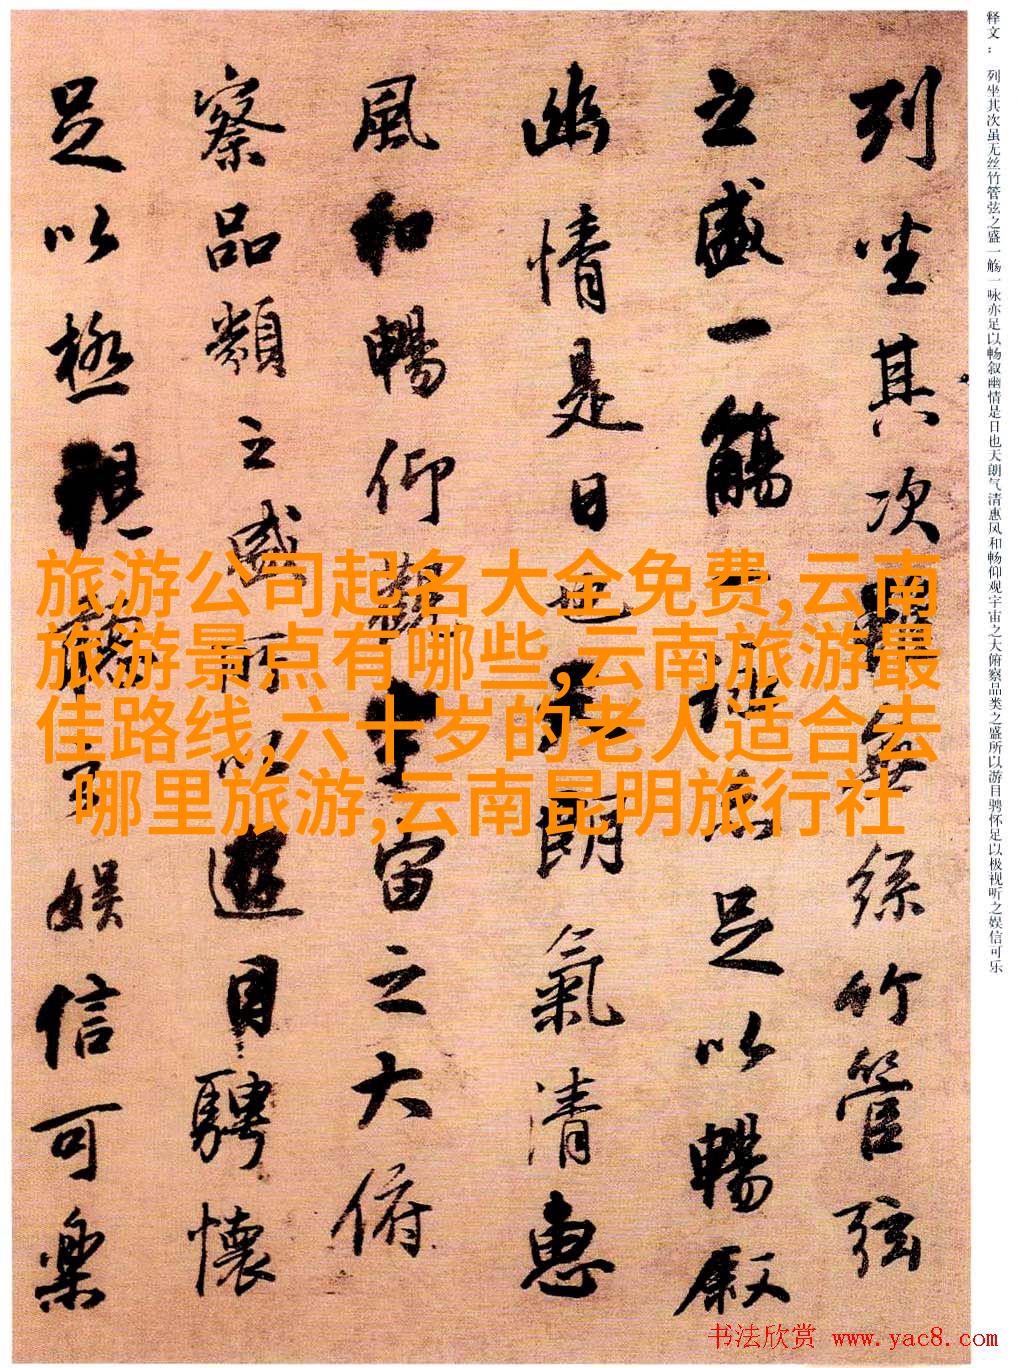 释文： 列坐其次虽无丝竹管弦之盛一觞一咏亦足以畅叙幽情是日也天朗气清惠风和畅仰观宇宙之大俯察品类之盛所以游目骋怀足以极视听之娱信可乐
列坐其次雖無絲竹管弦
之盛一觴一詠亦足以暢叙
幽情是日也天朗氣清惠
風和暢仰觀宇宙之大俯
察品類之盛所以遊目騁懷
足以極視聽之娛信可樂
旅游公司起名大全免费,云南
旅游景点有哪些,云南旅游最
佳路线,六十岁的老人适合去
哪里旅游,云南昆明旅行社
书法欣赏 www.yac8.com